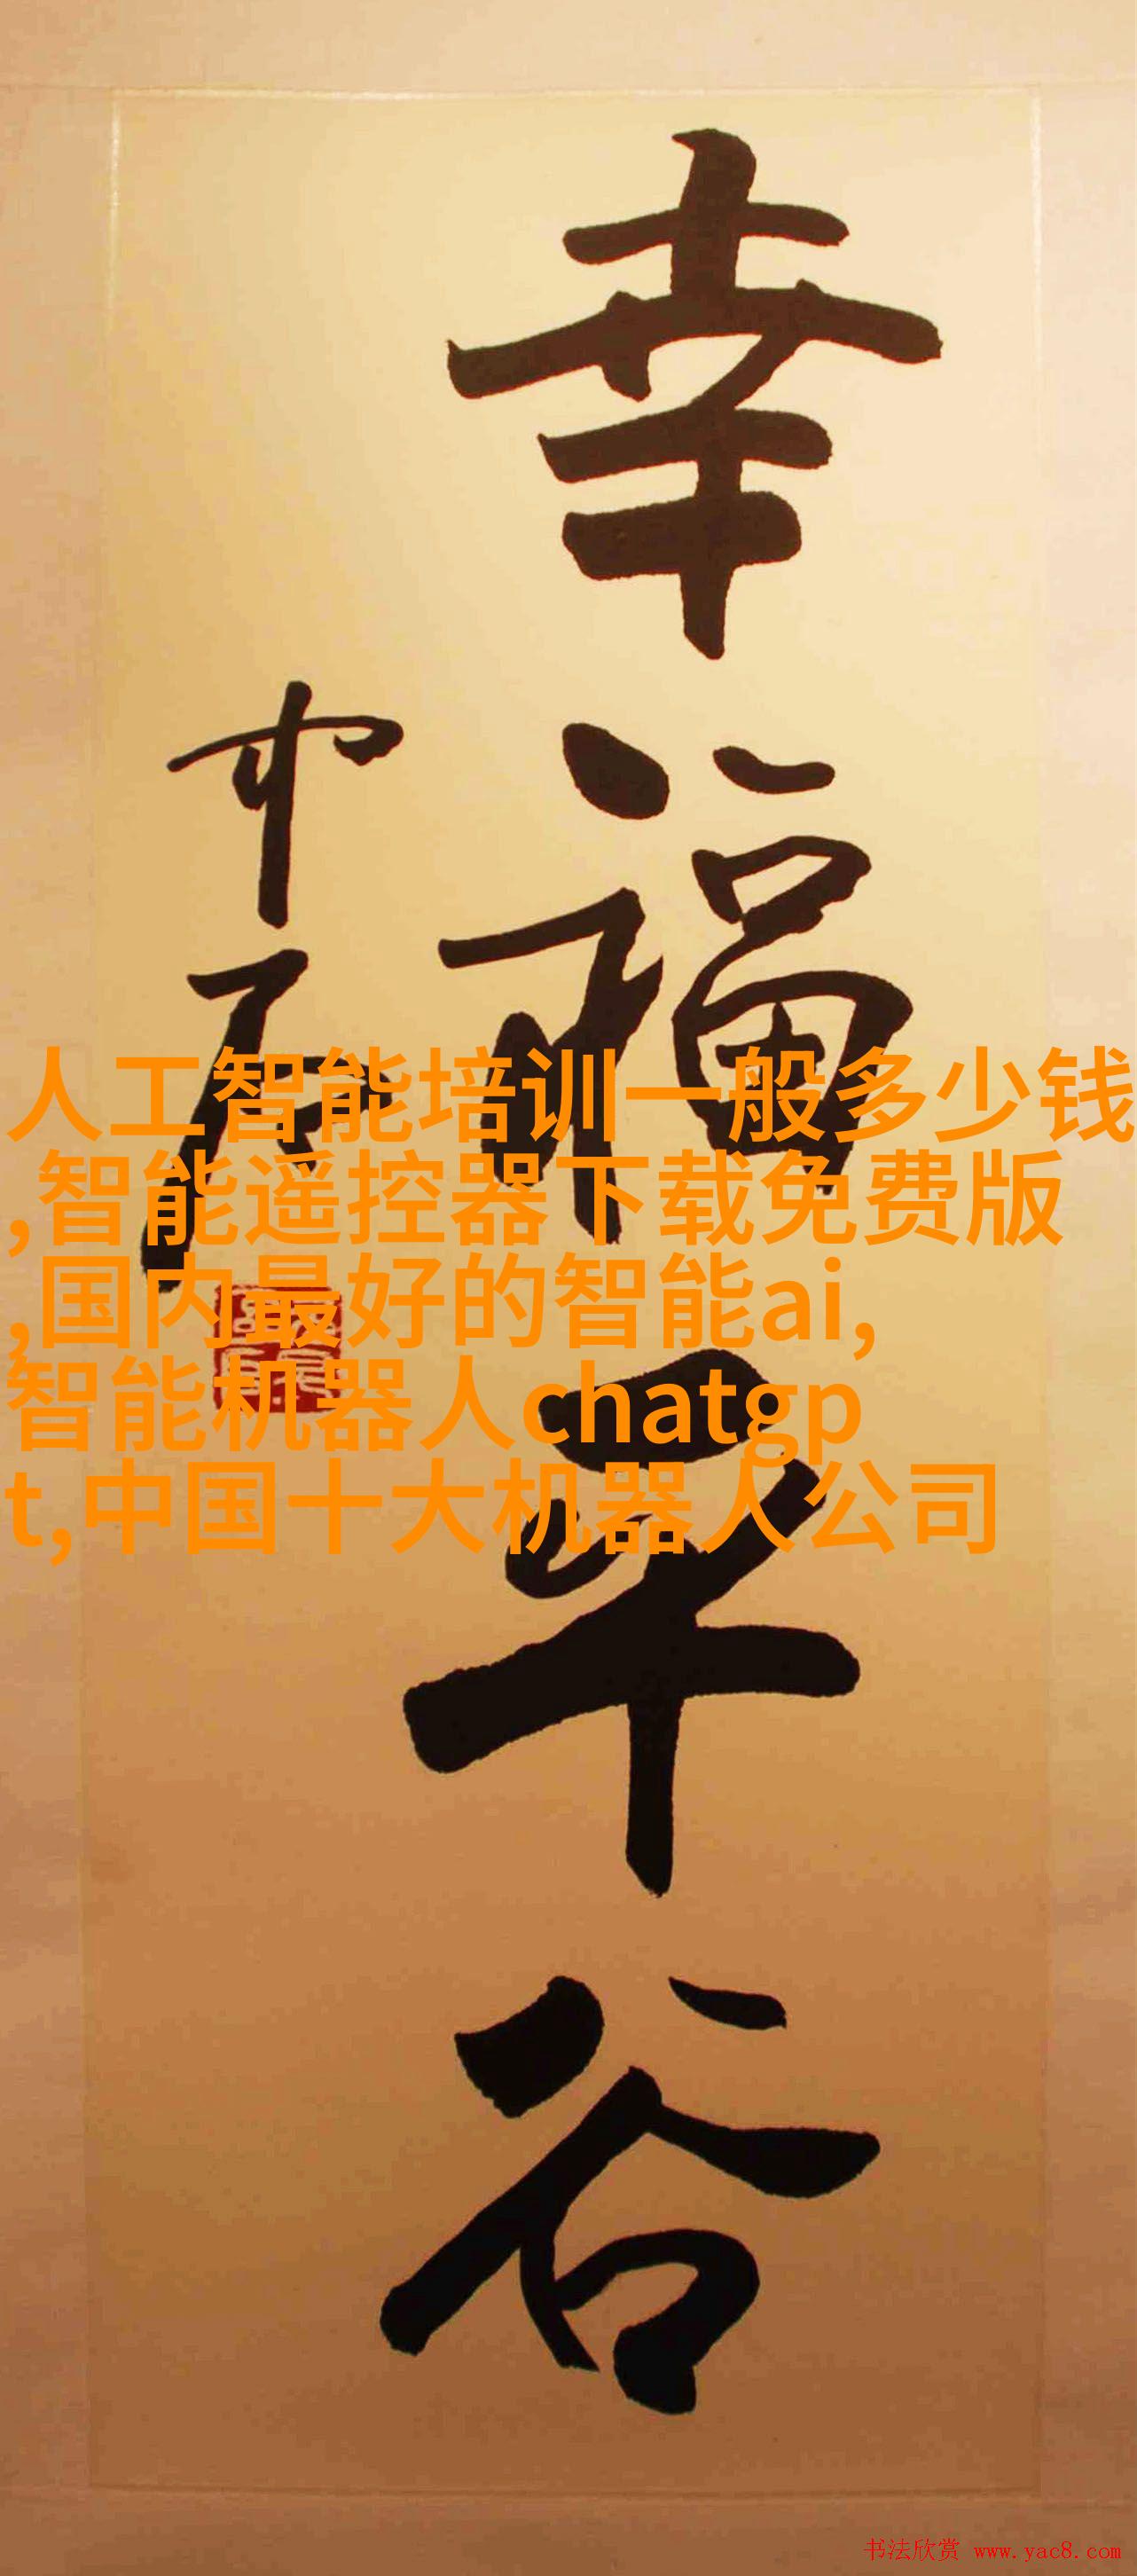 幸福平谷
中石
人工智能培训一般多少钱
,智能遥控器下载免费版
,国内最好的智能ai,
智能机器人chatgp
t,中国十大机器人公司
书法欣赏 www.yac8.com